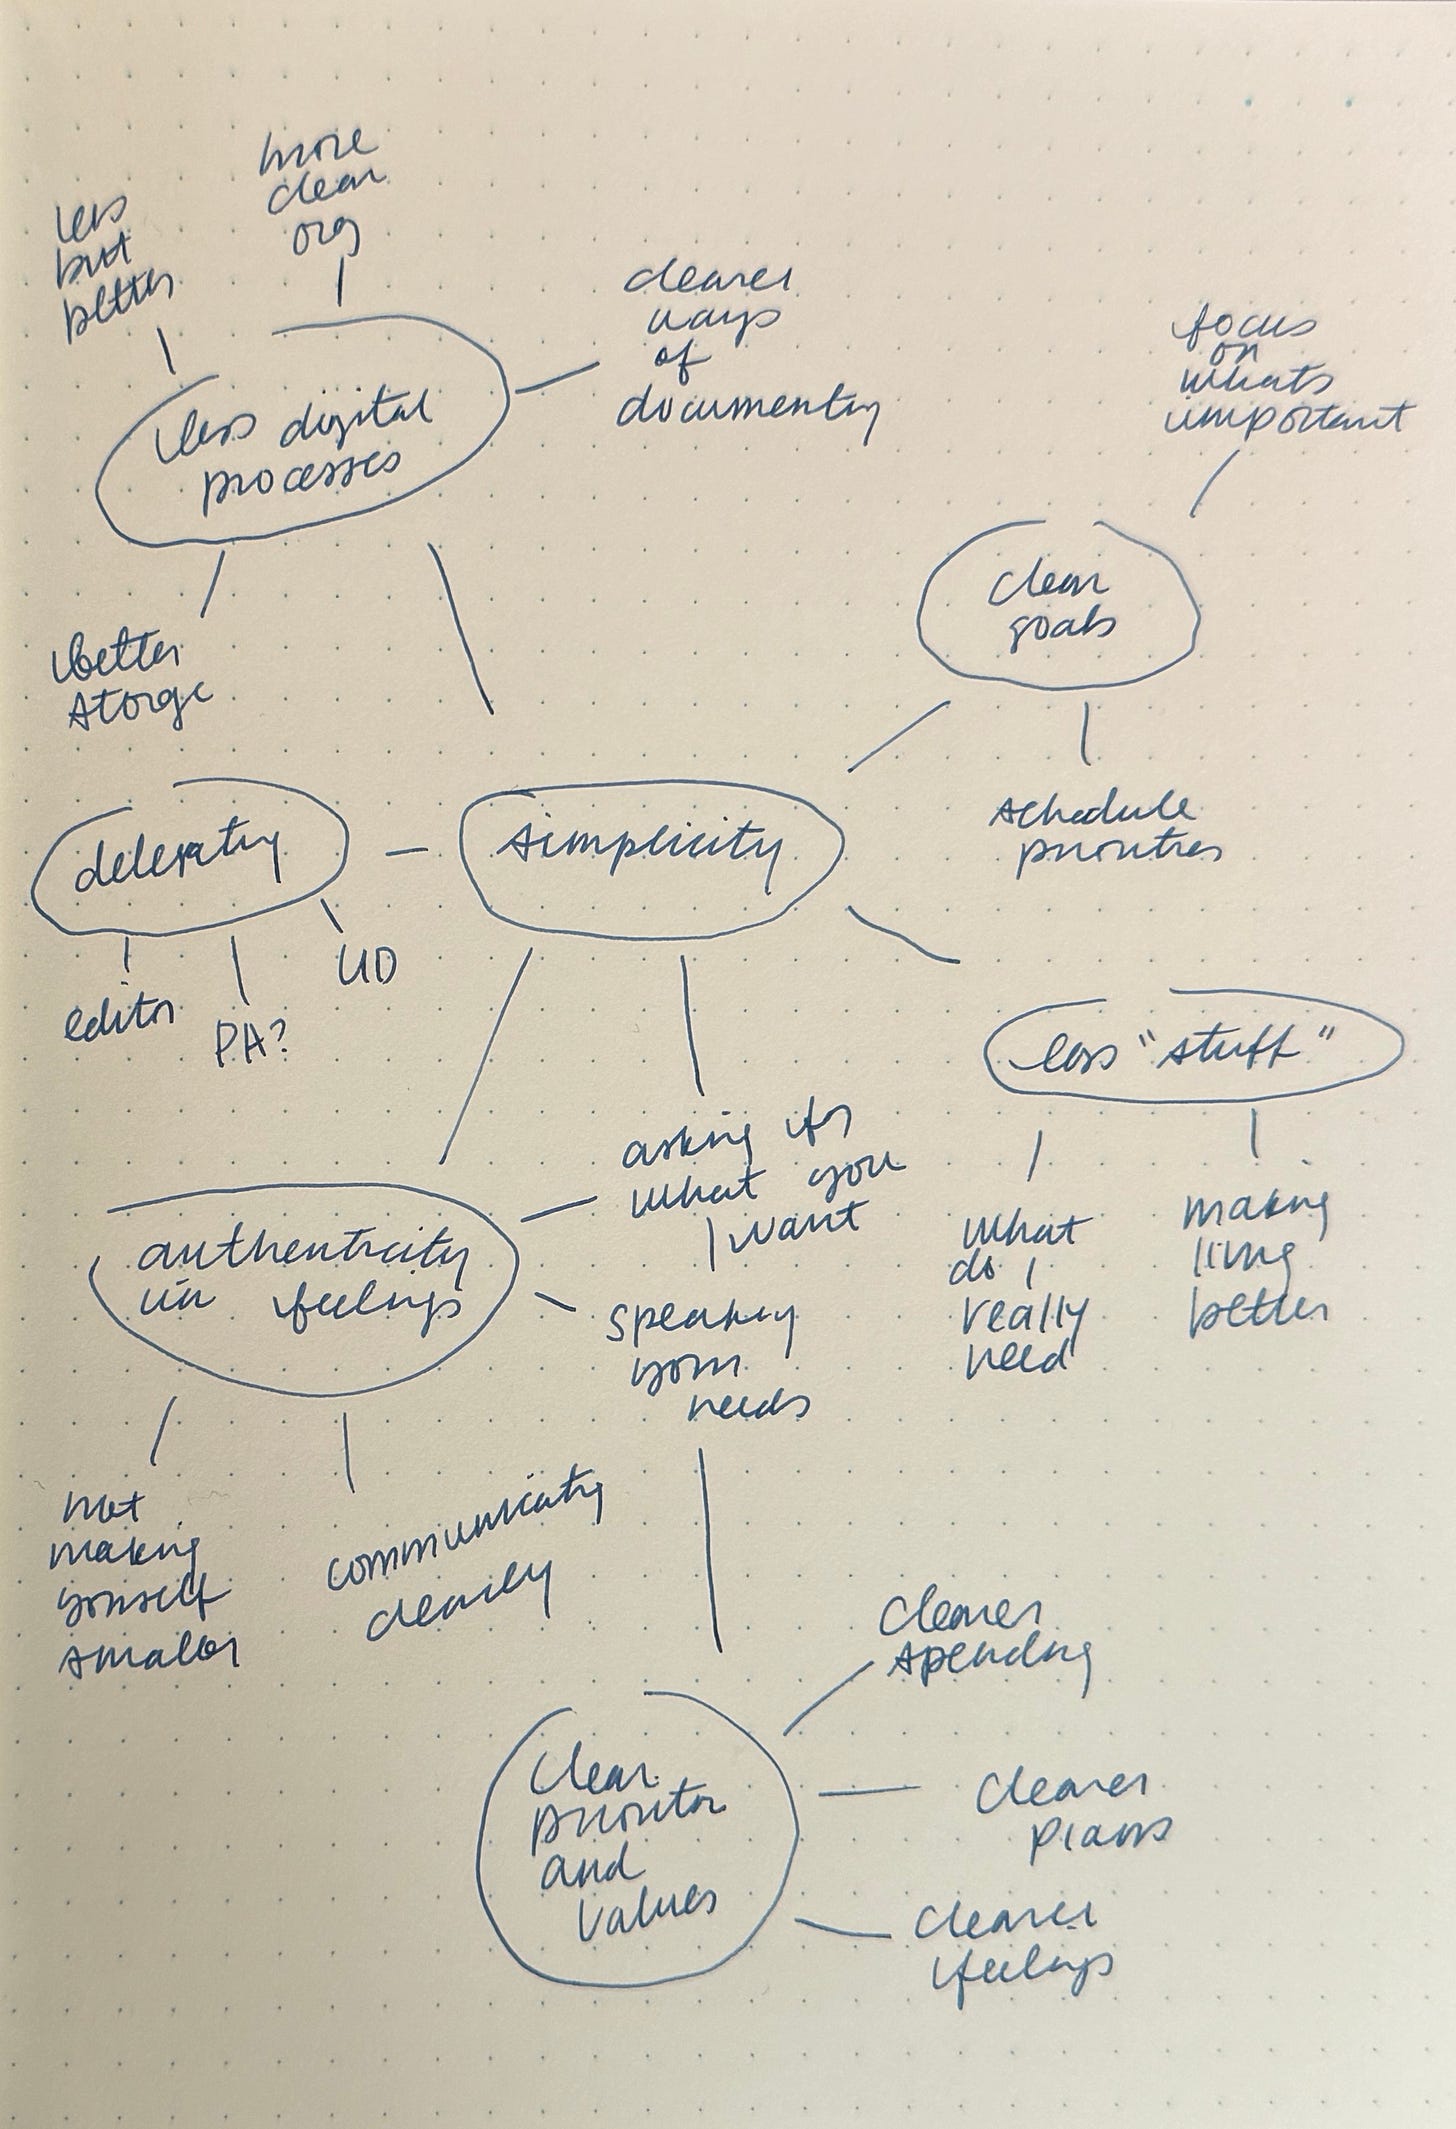 more
clear
org
less
but
better
clearer
ways
of
documenting
focus
on
whats
important
less digital
processes
clear
goals
better
storge
schedule
priorities
delegating
simplicity
editor
PA?
less "stuff"
asking for
what you
want
what
do i
really
need
making
living
better
authenticity
in feelings
speaking
your
needs
not
making
yourself
smaller
communicating
clearly
clearer
spending
clear
and
values
clearer
plans
clearer
feelings